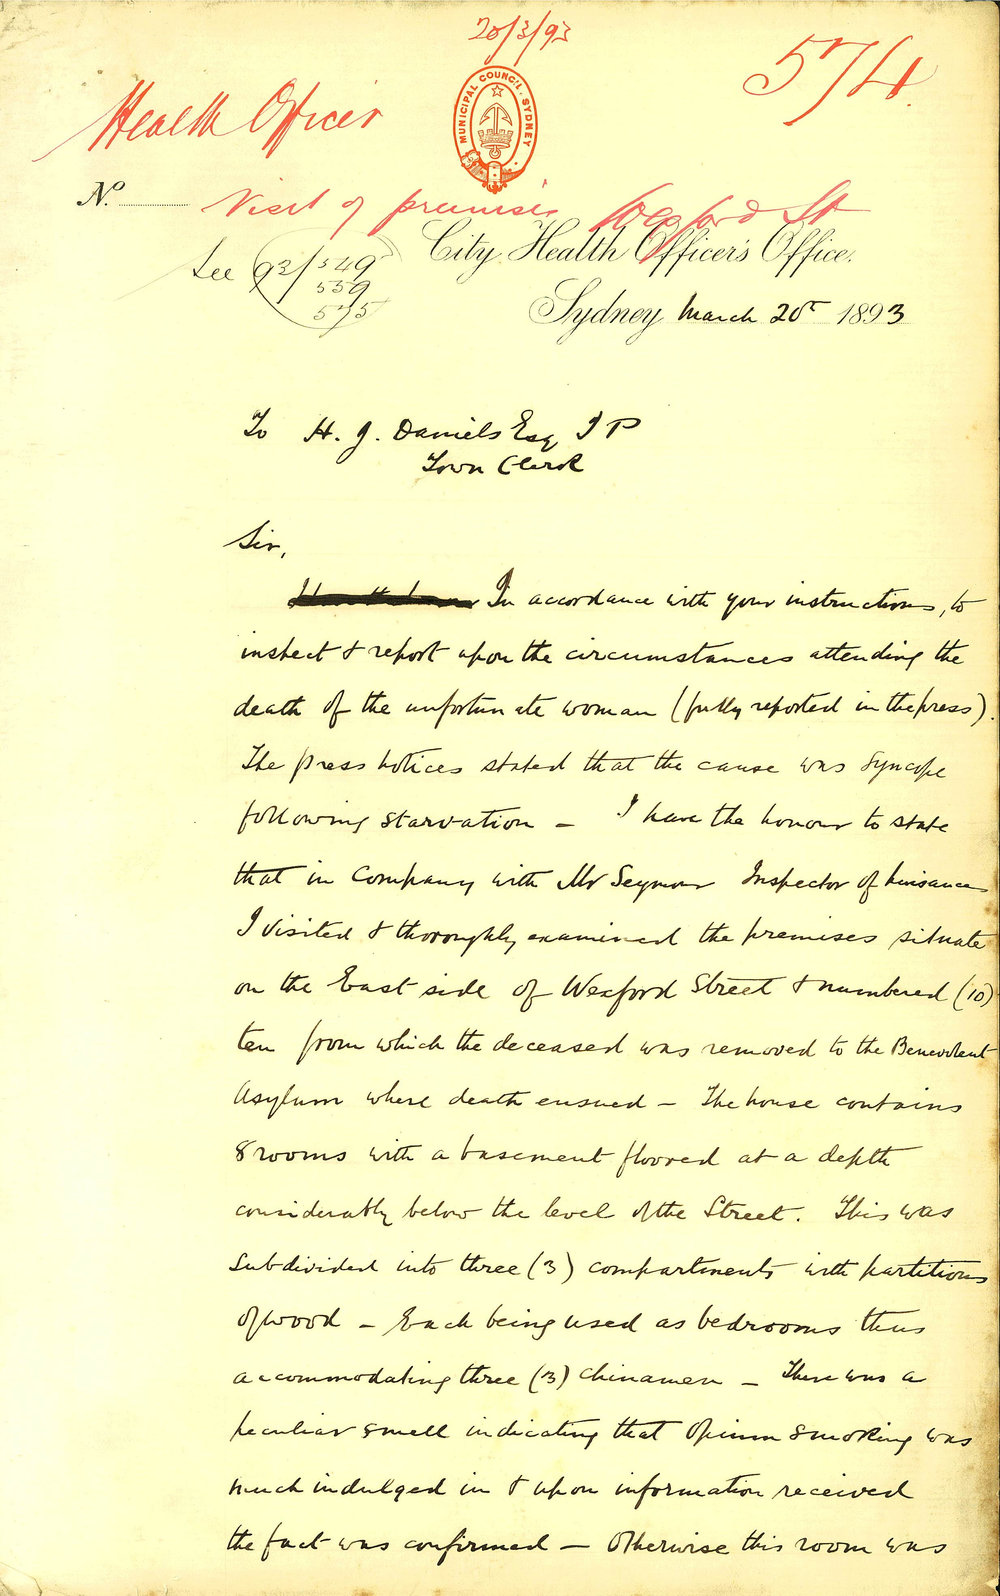 20/3/93
574
Health Officer
MUNICIPAL COUNCIL. SYDNEY
No.
Visit of premises Wexford St
See 93/549
559
575
City Health Officer's Office.
Sydney March 20th 1893
To H. J. Daniels Esq J P
Town Clerk
Sir,
In accordance with your instructions, to
inspect & report upon the circumstances attending the
death of the unfortunate woman (fully reported in the press).
The press notices stated that the cause was Syncope
following starvation – I have the honour to state
that in Company with Mr Seymour Inspector of Nuisances
I visited & thoroughly examined the premises situate
on the East side of Wexford Street & numbered (10)
ten from which the deceased was removed to the Benevolent
Asylum where death ensued – The house contains
8 rooms with a basement floored at a depth
considerably below the level of the Street. This was
Subdivided into three (3) compartments with partitions
of wood – Each being used as bedrooms thus
accommodating three (3) Chinamen – There was a
peculiar smell indicating that Opium smoking was
much indulged in & upon information received
the fact was confirmed – Otherwise this room was